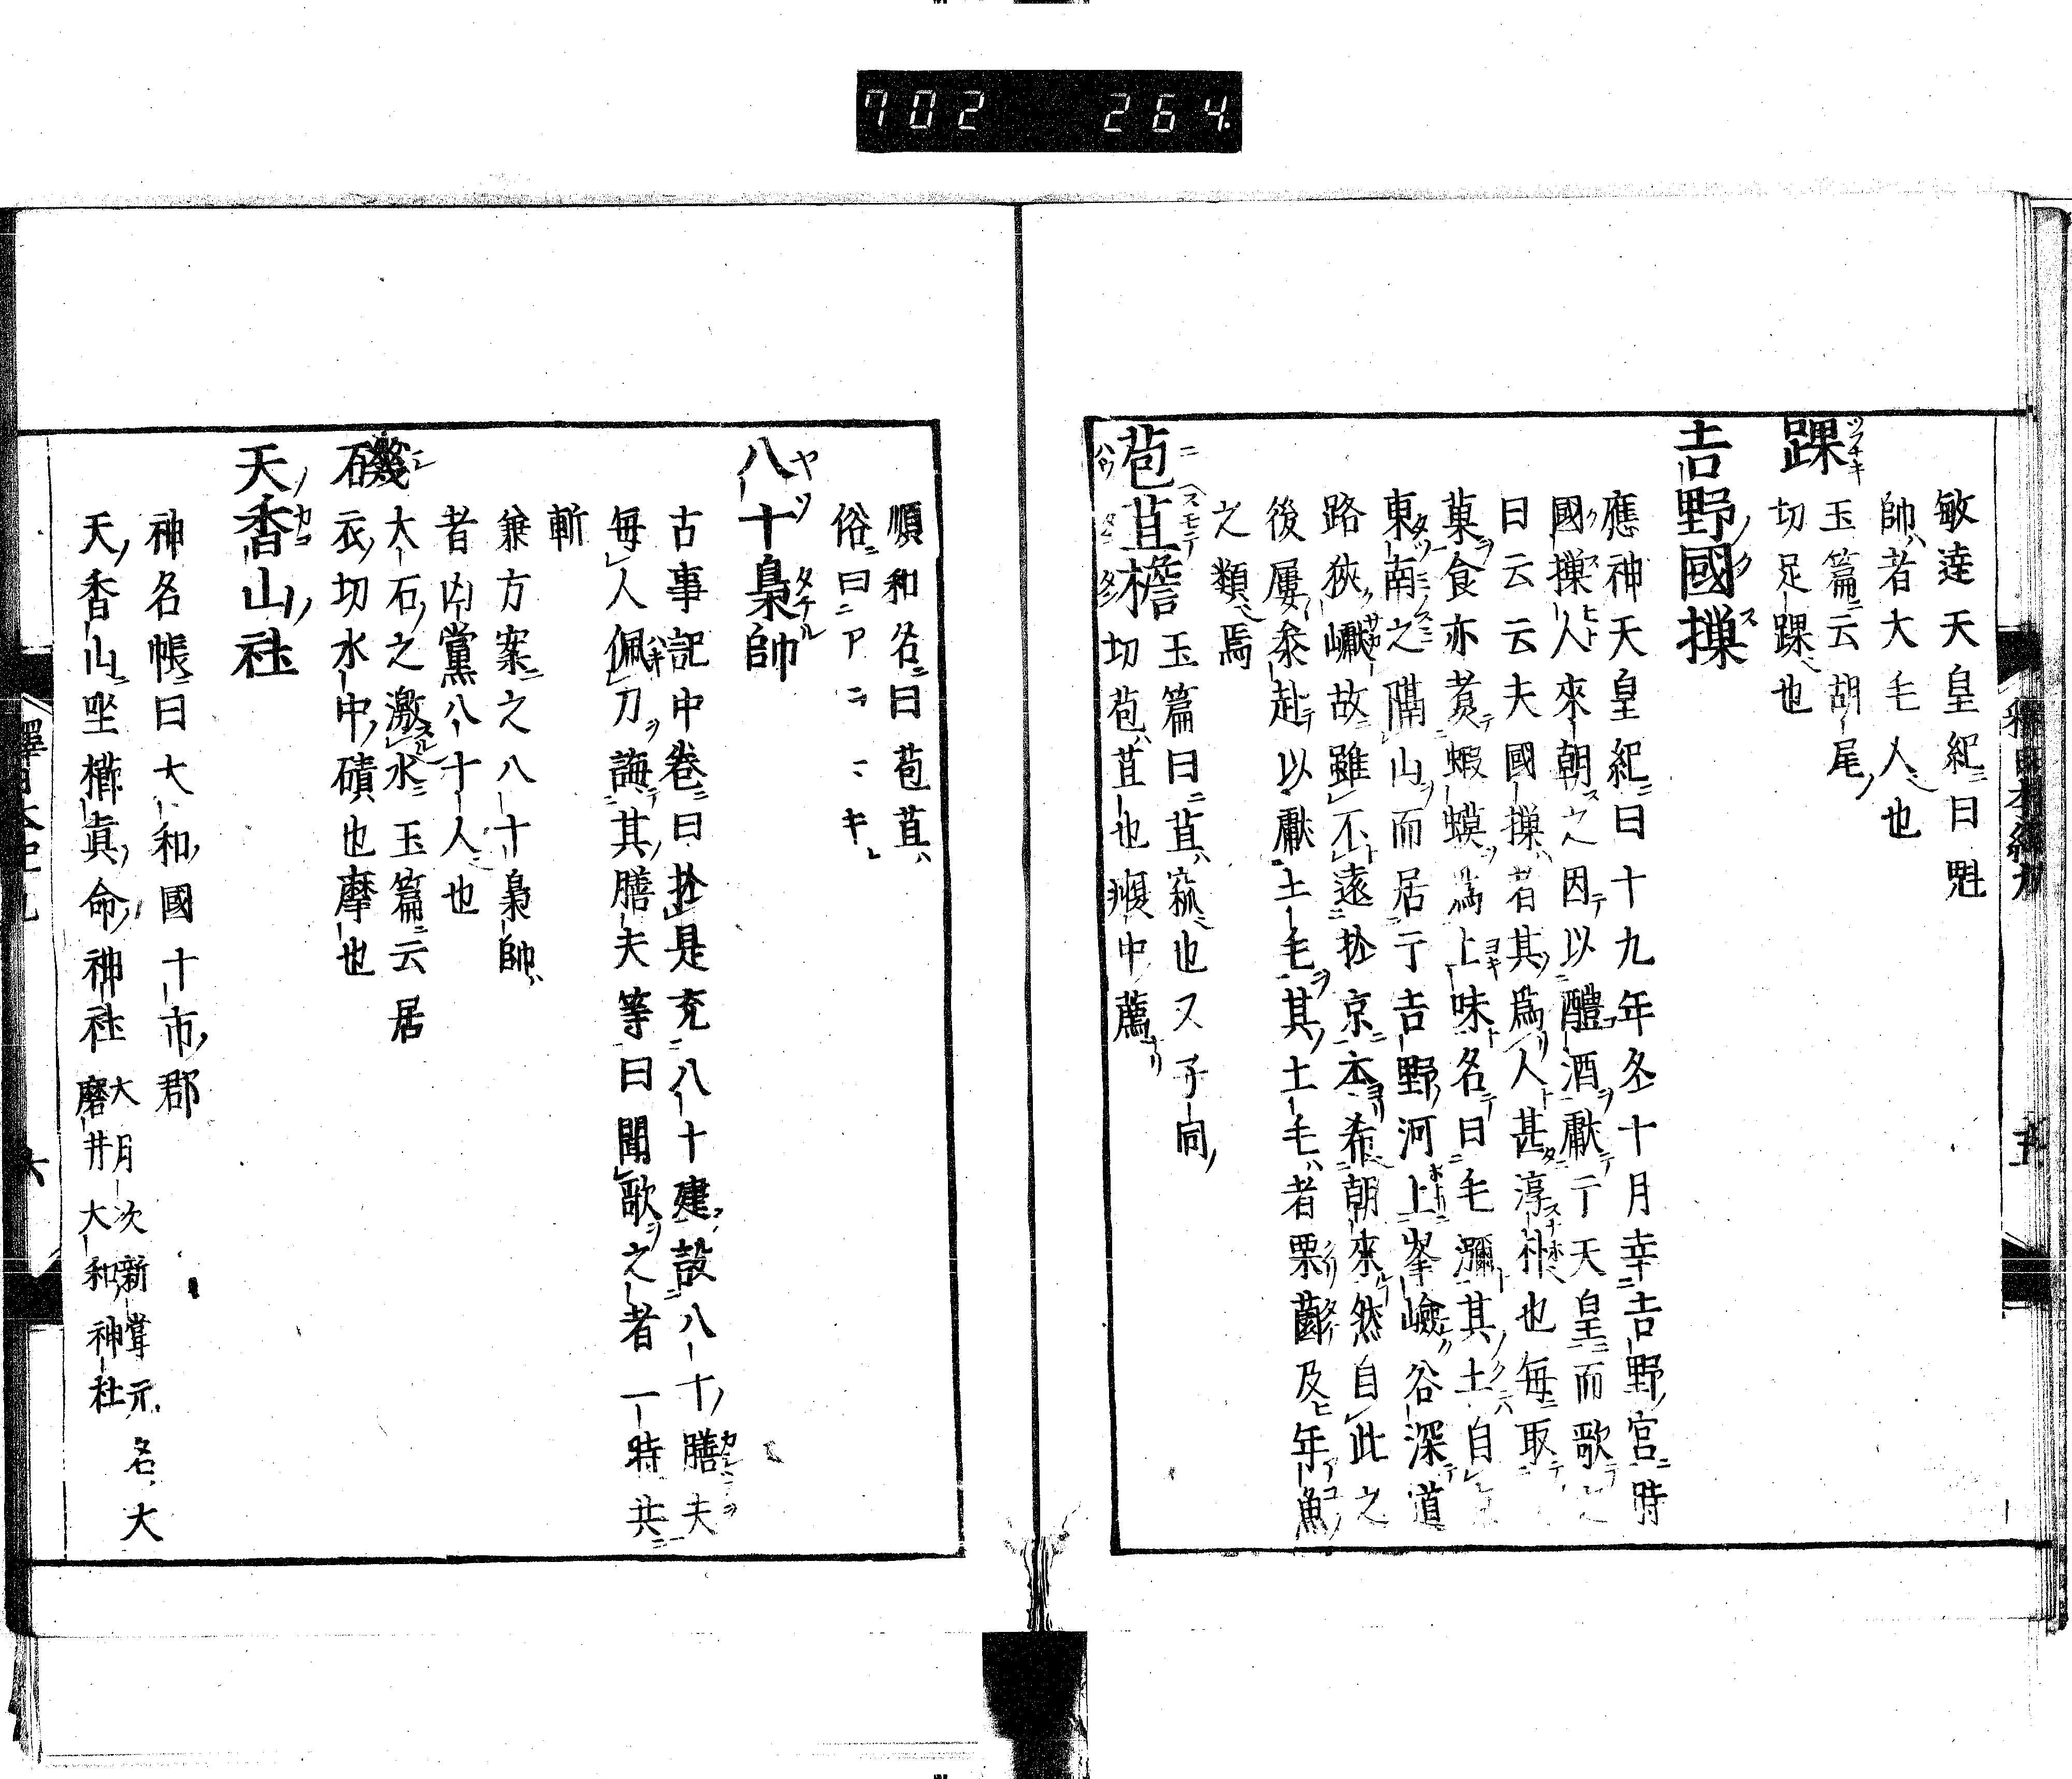 702 264.
敏達天皇紀曰魁
帥者大毛人也
踝
玉篇云胡尾
切足踝也
吉野國摷
應神天皇紀曰十九年冬十月幸吉野宮時
國摷人來朝之因以醴酒獻于天皇而歌之
曰云云夫國摷者其爲人甚淳朴也每取
菓食亦煑蝦蟆爲上味名曰毛瀰其土自
東南之隔山而居于吉野河上峯嶮谷深道
路狹巘故雖不遠於京本希朝來然自此之
後屢叅赴以獻土毛其土毛者栗菌及年魚
之類焉
苞苴檐
玉篇曰苴菰也又子同
切苞苴也䪴中薦
順和名曰苞苴
俗曰アラマキ
八十梟帥
古事記中卷曰於是充八十建設八十膳夫
每人佩刀誨其膳夫等曰聞歌之者一時共
斬
兼方案之八十梟帥
者凶黨八十人也
磯
大石之激水玉篇云居
衣切水中磧也摩也
天香山社
神名帳曰大和國十市郡
天香山坐櫛眞命神社 大月次新嘗元名大
磨井大和神社